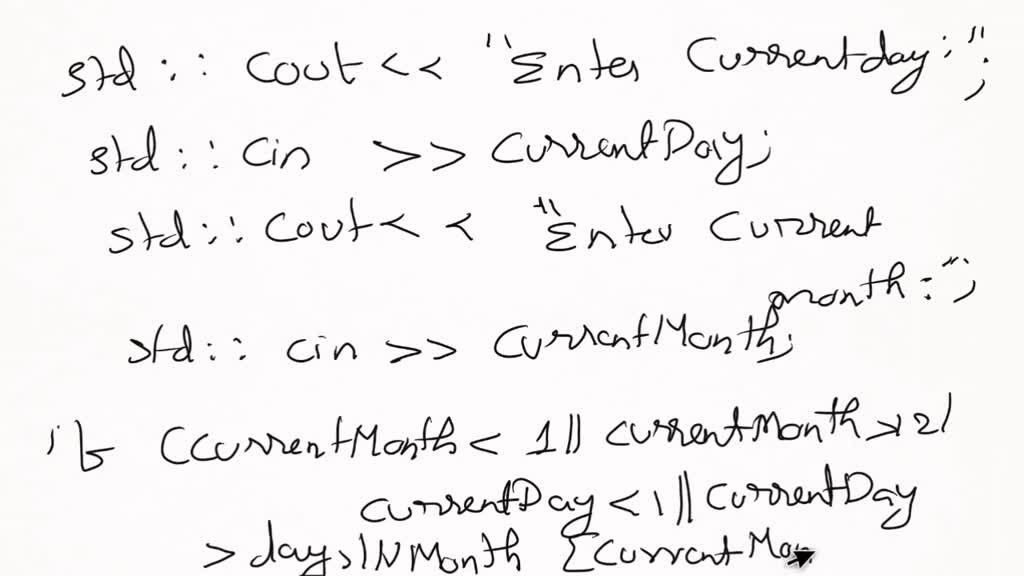 std :: cout << "Enter Currentday:";
std :: cin >> currentDay;
std :: cout << "Enter Current
month:";
std :: cin >> currentMonth;
if (currentMonth < 1 || currentMonth > 12 |
currentDay < 1 || currentDay
> daysINMonth [currentMon